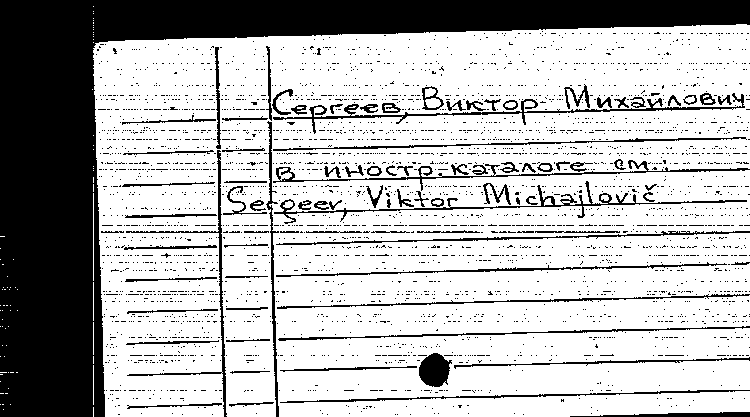 Сергеев, Виктор Михайлович
в иностр. каталоге см.:
Sergeev, Viktor Michajlovič